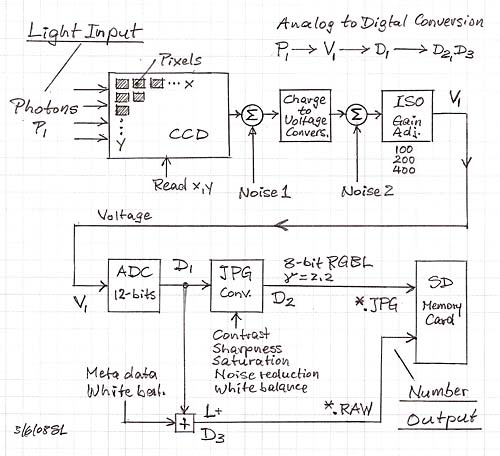 Light Input
Analog to Digtal Conversion
P1 → V1 → D1 → D2, D3
Pixels
... x
Photons
P1
Y
CCD
Σ
Charge
to
Voltage
Convers.
Σ
ISO
Gain
Adj.
100
200
400
V1
Read x,y
Noise 1
Noise 2
Voltage
V1
ADC
12-bits
D1
JPG
Conv.
8-bit RGBL
γ=2,2
D2
*.JPG
SD
Memory
Card
Contrast
Sharpness
Saturation
Noise reduction
White balance
Meta data
White bal.
+
L+
D3
*.RAW
Number
Output